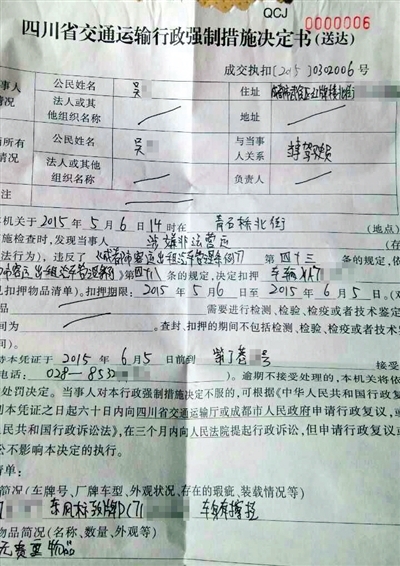 QCJ
0000006
四川省交通运输行政强制措施决定书(送达)
成交执扣[2015]0302006号
事人
情况
公民姓名
吴
住址
法人或其
他组织名称
地址
所有
情况
公民姓名
吴
与当事
人关系
法人或其他
组织名称
负责人
注
机关于2015年5月6日14时在 青石桥北街 (地点)
施检查时,发现当事人 涉嫌非法营运 (在
法行为),违反了《成都市客运出租汽车管理条例》第 四十三 条的规定,依
市客运出租汽车管理条例》第四十八 条的规定,决定扣押 车辆
扣押物品清单)。扣押期限:2015年5月6日至2015年6月5日。(对
品 需要进行检测、检验、检疫或者技术鉴定
间为 。查封、扣押的期间不包括检测、检验、检疫或者技术鉴
持本凭证于2015年6月5日前到 号
电话:028-853 )。逾期不接受处理的,本机关将依
处罚决定。当事人对本行政强制措施决定不服的,可根据《中华人民共和国行政
到本凭证之日起六十日内向四川省交通运输厅或成都市人民政府申请行政复议
人民共和国行政诉讼法》,在三个月内向人民法院提起行政诉讼,但申请行政复议或
讼不影响本决定的执行。
清单:
简况(车牌号、厂牌车型、外观状况、存在的瑕疵、装载情况等)
东风标致牌DC71
物品简况(名称、数量、外观等)
无贵重物品